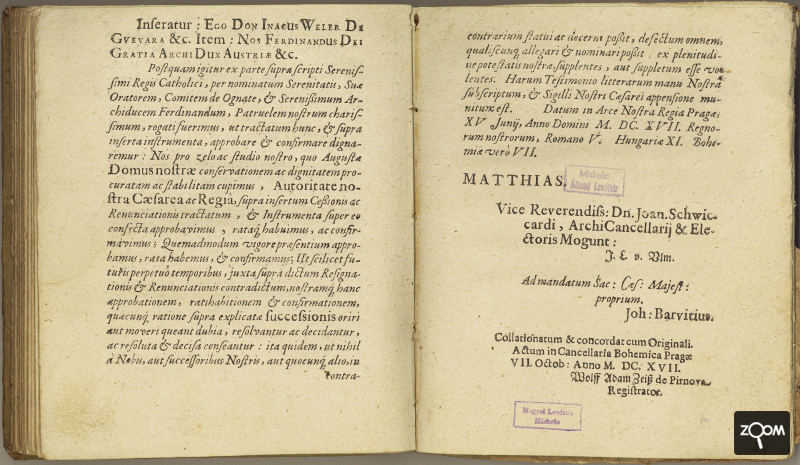 Inseratur : EGO DON INACUS WELER DE
GVEVARA &c. Item : NOS FERDINANDUS DEI
GRATIA ARCHI DUX AUSTRIÆ &c.
Postquam igitur ex parte supra scripti Serenis-
simi Regis Catholici, per nominatum Serenitatis, Suæ
Oratorem, Comitem de Ognate, & Serenissimum Ar-
chiducem Ferdinandum, Patruelem nostrum charis-
simum, rogati fuerimus, ut tractatum hunc, & supra
inserta instrumenta, approbare & confirmare digna-
remur : Nos pro zelo ac studio nostro, quo Augustæ
Domus nostræ conservationem ac dignitatem pro-
curatam ac stabilitam cupimus, Autoritate no-
stra Cæsarea ac Regia, supra insertum Cessionis ac
Renunciationis tractatum, & Instrumenta super eo
confecta approbavimus, rataq; habuimus, ac confir-
mavimus; Quemadmodum vigore præsentium appro-
bamus, rata habemus, & confirmamus; Ut scilicet fu-
turis perpetuò temporibus, juxta supra dictum Resigna-
tionis & Renunciationis contradictum, nostramq; hanc
approbationem, ratihabitionem & confirmationem,
quæcunq; ratione supra explicatæ successionis oriri
aut moveri queant dubia, resolvantur ac decidantur,
ac resoluta & decisa censeantur : ita quidem, ut nihil
à Nobis, aut successoribus Nostris, aut quocunq; alio, in
contra-
contrarium statui ac decerni possit, defectum omnem,
qualiscunq; allegari & nominari possit : ex plenitudi-
ne potestatis nostræ supplentes, aut suppletum esse vo-
lentes. Harum Testimonio litterarum manu Nostra
subscriptum, & Sigilli Nostri Cæsarei appensione mu-
nitum est. Datum in Arce Nostra Regia Pragæ
XV Junij, Anno Domini M. DC. XVII. Regno-
rum nostrorum, Romano V. Hungariæ XI. Bohe-
miæ verò VII.
MATTHIAS.
Miskolci
Állami Levéltár
Vice Reverendiss: Dn. Joan. Schwic-
cardi, ArchiCancellarij & Ele-
ctoris Mogunt:
J. L. v. Ulm.
Ad mandatum Sac: Cæs: Majest:
proprium.
Joh: Barvitius.
Collationatum & concordat cum Originali.
Actum in Cancellaria Bohemica Pragæ
VII. Octob: Anno M. DC. XVII.
Wolff Adam Zeiß de Pirnova
Registrator.
Magyar Levéltár
Miskolc
ZOOM